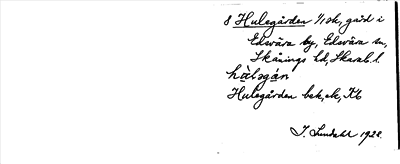 8 Hulegården 1/1 sk, gård i
Edsvära by, Edsvära sn,
Skånings hd, Skarab. l.
hùlagán
Hulegården bek, ek, Kb
J. Lundahl 1928.